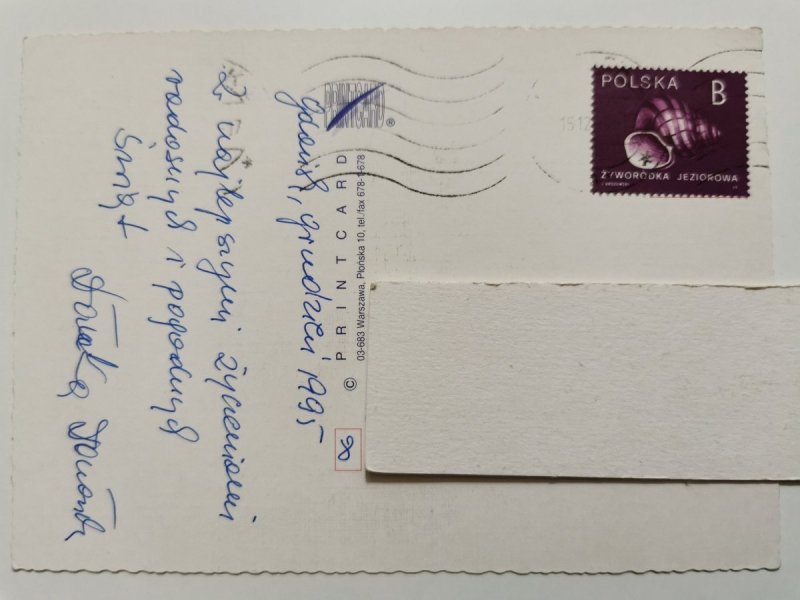 Gdańsk, grudzień 1995
Z najlepszymi życzeniami
radosnych i pogodnych
Świąt
PRINTCARD ®
© PRINTCARD
03-683 Warszawa, Płońska 10, tel./fax 678-1-678
8
15.12
POLSKA B
ŻYWORÓDKA JEZIOROWA